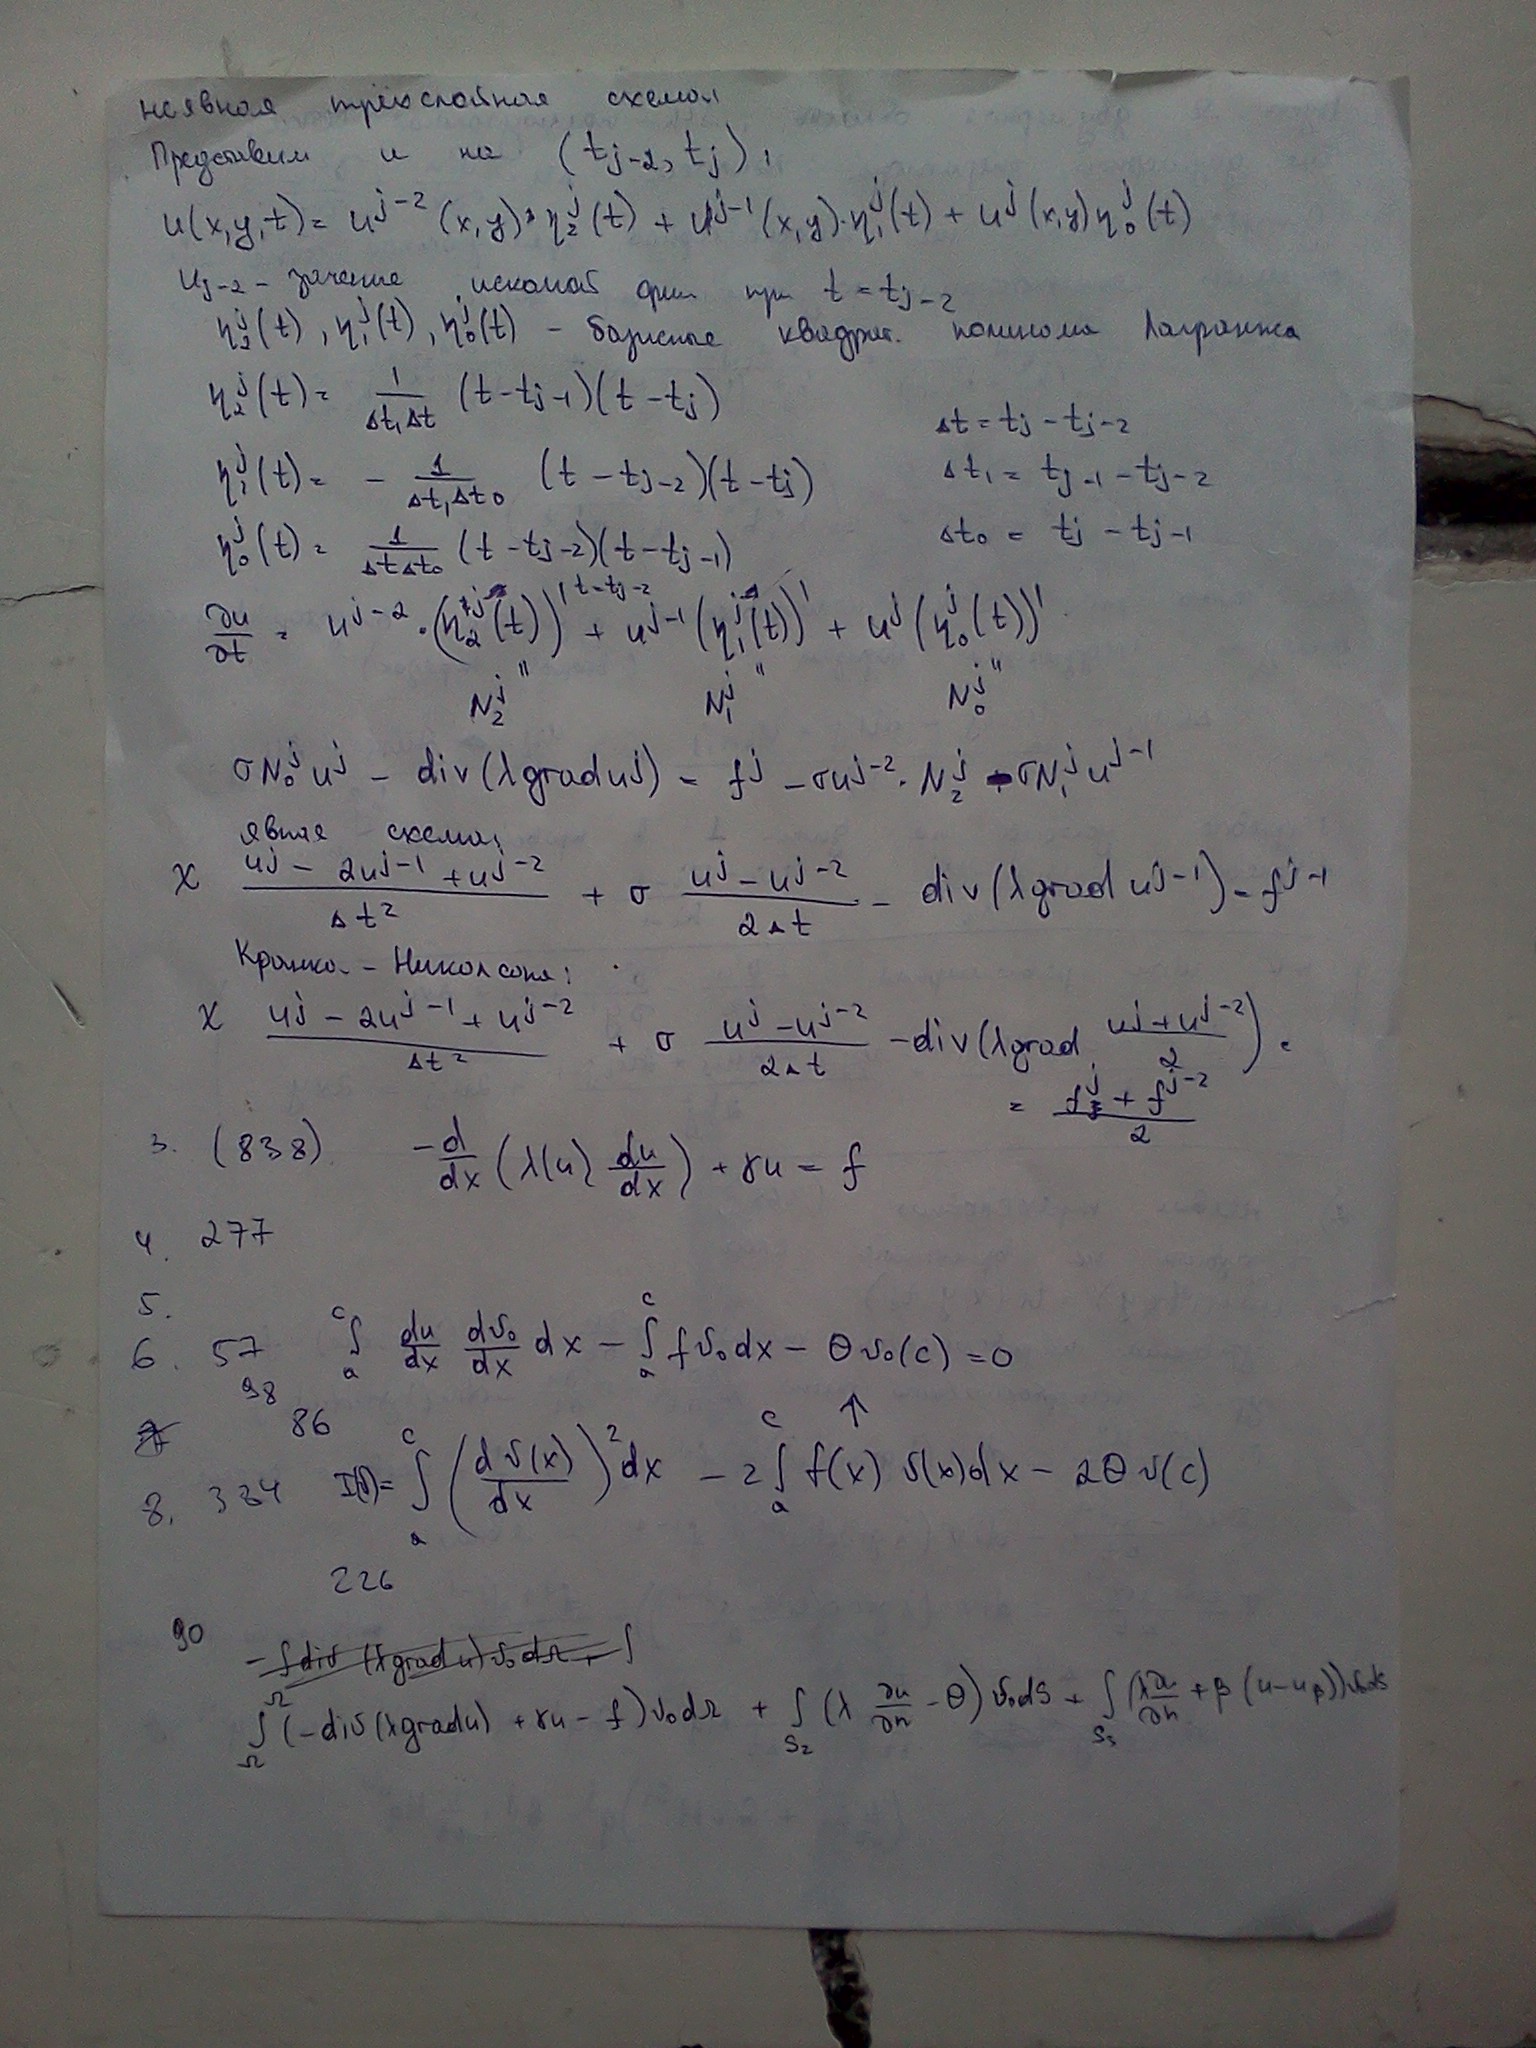 неявная трёхслойная схема
Представим u на (t_{j-2}, t_j):
u(x,y,t) = u^{j-2}(x,y)·η_2^j(t) + u^{j-1}(x,y)·η_1^j(t) + u^j(x,y) η_0^j(t)
u_{j-2} – значение искомой фции при t = t_{j-2}
η_2^j(t), η_1^j(t), η_0^j(t) – базисные квадрат. полинома Лагранжа
η_2^j(t) = 1/(Δt_1Δt) (t-t_{j-1})(t-t_j)
Δt = t_j - t_{j-2}
η_1^j(t) = - 1/(Δt_1Δt_0) (t-t_{j-2})(t-t_j)
Δt_1 = t_{j-1} - t_{j-2}
η_0^j(t) = 1/(ΔtΔt_0) (t-t_{j-2})(t-t_{j-1})
Δt_0 = t_j - t_{j-1}
t=t_{j-2}
∂u/∂t = u^{j-2}·(η_2^j(t))' + u^{j-1}(η_1^j(t))' + u^j(η_0^j(t))'
" " "
N_2^j N_1^j N_0^j
σN_0^j u^j - div(λ grad u^j) = f^j - σu^{j-2}·N_2^j - σN_1^j u^{j-1}
явная схема:
χ (u^j - 2u^{j-1} + u^{j-2})/Δt² + σ (u^j - u^{j-2})/(2Δt) - div(λ grad u^{j-1}) = f^{j-1}
Кранка-Николсона:
χ (u^j - 2u^{j-1} + u^{j-2})/Δt² + σ (u^j - u^{j-2})/(2Δt) - div(λ grad (u^j + u^{j-2})/2) =
= (f^j + f^{j-2})/2
3. (838) -d/dx (λ(u) du/dx) + γu = f
4. 277
5.
6. 57 ∫_a^c du/dx dv_0/dx dx - ∫_a^c f v_0 dx - θ v_0(c) = 0
98
86 ↑
8. 334 I(v) = ∫_a^c (dv(x)/dx)² dx - 2∫_a^c f(x) v(x) dx - 2θ v(c)
226
90
-∫_Ω div(λ grad u) v_0 dΩ + ∫
∫_Ω (-div(λ grad u) + γu - f) v_0 dΩ + ∫_{S_2} (λ ∂u/∂n - θ) v_0 dS + ∫_{S_3} (λ ∂u/∂n + β(u - u_β)) v_0 dS